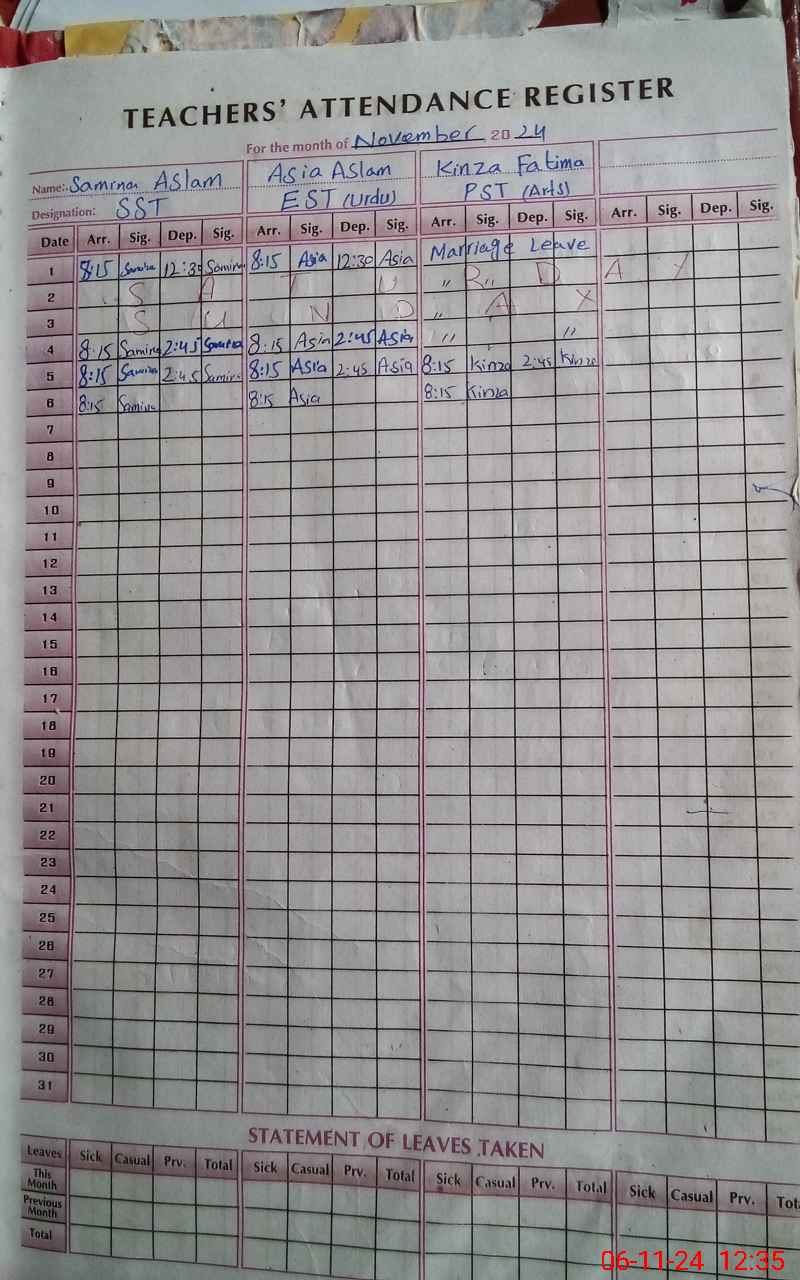 TEACHERS' ATTENDANCE REGISTER
For the month of November 2024
Name: Samina Aslam Asia Aslam Kinza Fatima
Designation: SST EST (Urdu) PST (Arts)
Date Arr. Sig. Dep. Sig. Arr. Sig. Dep. Sig. Arr. Sig. Dep. Sig. Arr. Sig. Dep. Sig.
1 8:15 Samina 12:30 Samina 8:15 Asia 12:30 Asia Marriage Leave
2 S A T U " R " D A Y
3 S U N D " A Y
4 8:15 Samina 2:45 Samina 8:15 Asia 2:45 Asia " "
5 8:15 Samina 2:45 Samina 8:15 Asia 2:45 Asia 8:15 Kinza 2:45 Kinza
6 8:15 Samina 8:15 Asia 8:15 Kinza
7
8
9
10
11
12
13
14
15
16
17
18
19
20
21
22
23
24
25
26
27
28
29
30
31
STATEMENT OF LEAVES TAKEN
Leaves Sick Casual Prv. Total Sick Casual Prv. Total Sick Casual Prv. Total Sick Casual Prv. Tot
This Month
Previous Month
Total
06-11-24 12:35